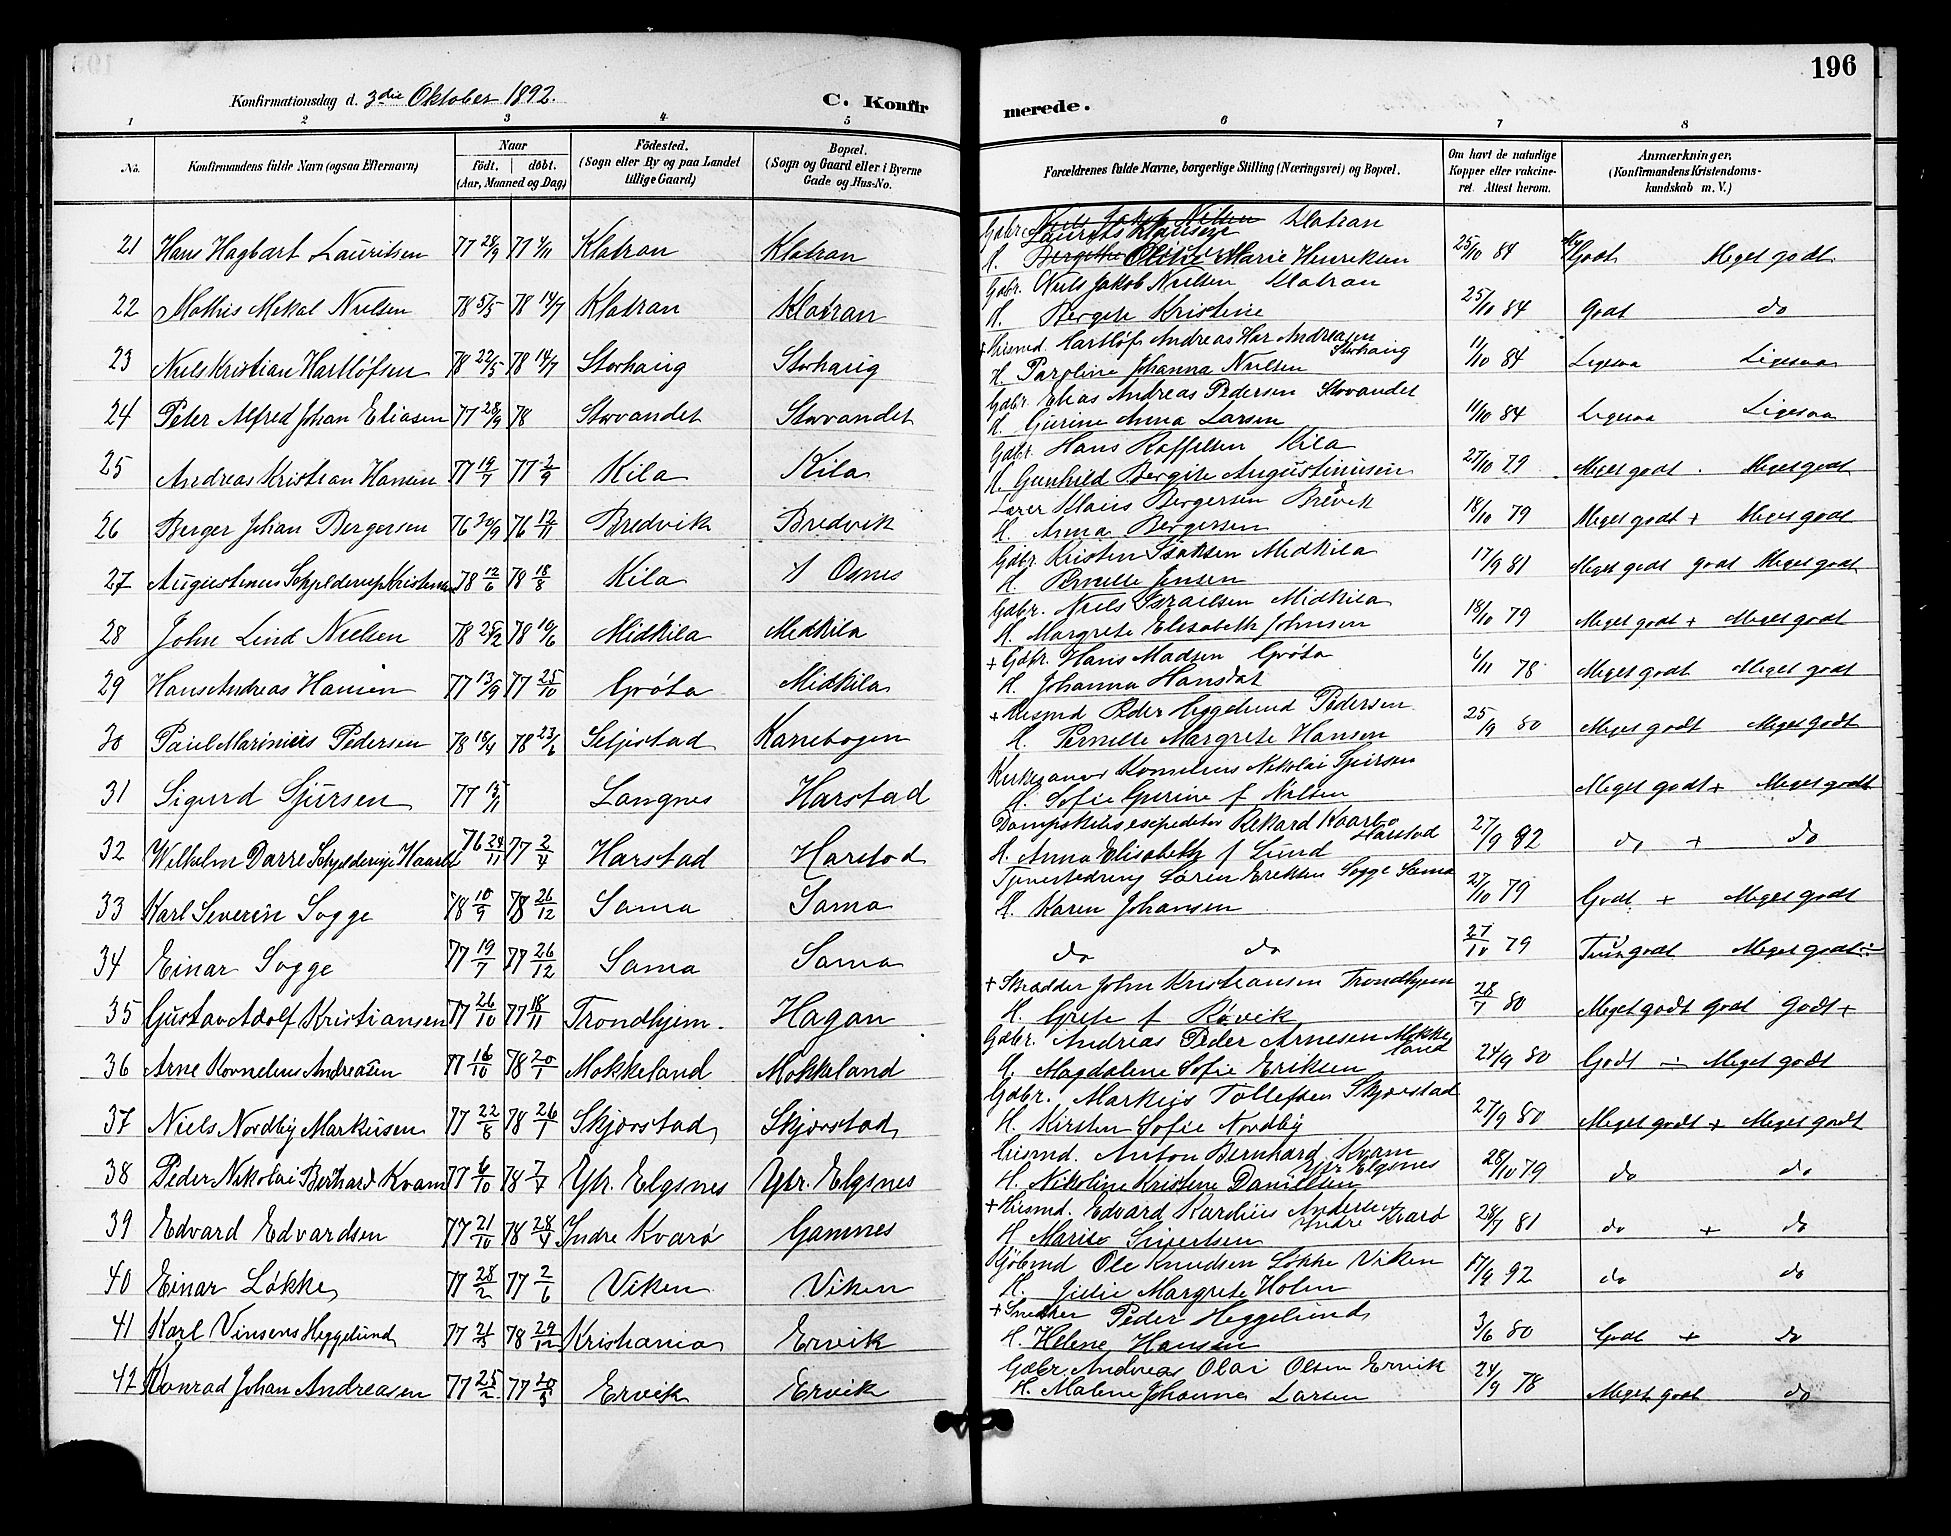 196
Konfirmationsdag d. 3die Oktober 1892. C. Konfirmerede.
1 2 3 4 5 6 7 8
No. Konfirmandens fulde Navn (ogsaa Efternavn) Naar født, døbt. (Aar, Maaned og Dag) Födested. (Sogn eller By og paa Landet tillige Gaard) Bopæl. (Sogn og Gaard eller i Byerne Gade og Hus-No. Forældrenes fulde Navne, borgerlige Stilling (Næringsvei) og Bopæl. Om havt de naturlige Kopper eller vaccineret. Attest herom. Anmærkninger. (Konfirmandens Kristendomskundskab m. V.)
21 Hans Hagbart Lauritsen 77 28/9 77 4/11 Klatran Klatran Gdbr. Laurits Klausen Klatran
H. Oline Marie Henriksen 25/10 84 Godt Meget godt
22 Mathis Mekal Nielsen 78 5/5 78 14/7 Klatran Klatran Gdbr. Niels Jakob Nielsen Klatran
H. Bergete Kristine 25/10 84 Godt do
23 Niels Kristian Hartløfsen 78 22/5 78 14/7 Storhaug Storhaug + Husmd. Hartløf Andreas Andreasen Storhaug
H. Paroline Johanna Nielsen 11/10 84 Ligesaa Ligesaa
24 Peter Alfred Johan Eliasen 77 28/9 78 Storvandet Storvandet Gdbr. Elias Andreas Pedersen Storvandet
H. Gurine Anna Larsen 11/10 84 Ligesaa Ligesaa
25 Andreas Kristian Hansen 77 19/7 77 2/9 Kila Kila Gdbr. Hans Roffelsen Kila
H. Gunhild Bergite Augustinusen 27/10 79 Meget godt Meget godt
26 Berger Johan Bergersen 76 30/9 76 12/11 Bredvik Bredvik Lærer Klaus Bergersen Brevik
H. Anna Bergersen 18/10 79 Meget godt + Meget godt
27 Augustinus Schjelderup Kristensen 78 12/6 78 18/8 Kila Gdbr. Kristen Isaksen Midkila
H. Pernille Jensen 17/9 81 Meget godt godt Meget godt
28 John Lind Nielsen 78 25/2 78 10/6 Midkila Medkila Gdbr. Niels Israelsen Midkila
H. Margrete Elisabeth Johnsen 18/10 79 Meget godt + Meget godt
29 Hans Andreas Hansen 77 13/9 77 25/10 Grøta Midkila + Gdbr. Hans Madsen Grøta
H. Johanna Hansdat 6/11 78 Meget godt Meget godt
30 Paul Marinius Pedersen 78 18/4 78 23/6 Seljestad Kanebogen + Husmd Peder Heggelund Pedersen
H. Pernelle Margrete Hansen 25/9 80 Meget godt Meget godt
31 Sigurd Sjursen 77 15/11 Langnes Harstad Kirkesanger Kornelius Nikolai Sjursen
H. Sofie Gurine f Nilsen Meget godt + Meget godt
32 Wilhelm Darre Schjelderup Kaarbø 76 24/11 77 2/4 Harstad Harstad Dampskibsexpeditør Rikard Kaarbø Harstad
H. Anna Elisabeth f Lund 27/9 92 do + do
33 Karl Severin Sogge 78 10/9 78 26/12 Sama Sama Søren Eriksen Sogge Sama
H. Karen Johansen 27/10 79 Godt + Meget godt
34 Einar Sogge 77 19/7 77 26/12 Sama Sama do do 27/10 79 Meget godt ÷
35 Gustav Adolf Kristiansen 77 26/10 77 18/11 Trondhjem. Hagan + Skrædder John Kristiansen Trondhjem
H. Grete f Røvik 28/7 80 Meget godt Godt Godt +
36 Arne Kornelius Andreasen 77 16/10 78 20/1 Mokkeland Mokkeland Gdbr. Andreas Peder Arnesen Mokkeland
H. Magdalene Sofie Eriksen 24/9 80 Godt ÷ Meget godt
37 Niels Nordby Markusen 77 22/8 78 26/1 Skjærstad Skjærstad Gdbr. Markus Tollefsen Skjærstad
H. Kirsten Sofie Nordby 27/9 80 Meget godt + Meget godt
38 Peder Nikolai Bernhard Kvam 77 6/10 78 7/7 Ytr. Elgsnes Ytr. Elgsnes Husmd. Anton Bernhard Kvam Ytr Elgsnes
H. Nikoline Kristine Danielsen 28/10 79 do do
39 Edvard Edvardsen 77 21/10 78 28/4 Indre Kvarø Gamnes + Husmd. Edvard Kardius Andersen Indre Kvarø
H Marie Sivertsen 28/7 81 do + do
40 Einar Løkke 77 28/2 77 2/6 Viken Viken Ole Knudsen Løkke Viken
H. Julie Margrete Holm 17/9 92 do do
41 Karl Vinsens Heggelund 77 78 29/12 Kristiania Ervik + Snedker Peder Heggelund
H. Helene Hansen 3/6 80 Godt + do
42 Konrad Johan Andreasen 77 25/2 77 20/5 Ervik Ervik Gdbr. Andreas Olai Olsen Ervik
H. Malene Johanna Larsen 24/9 78 Meget godt do